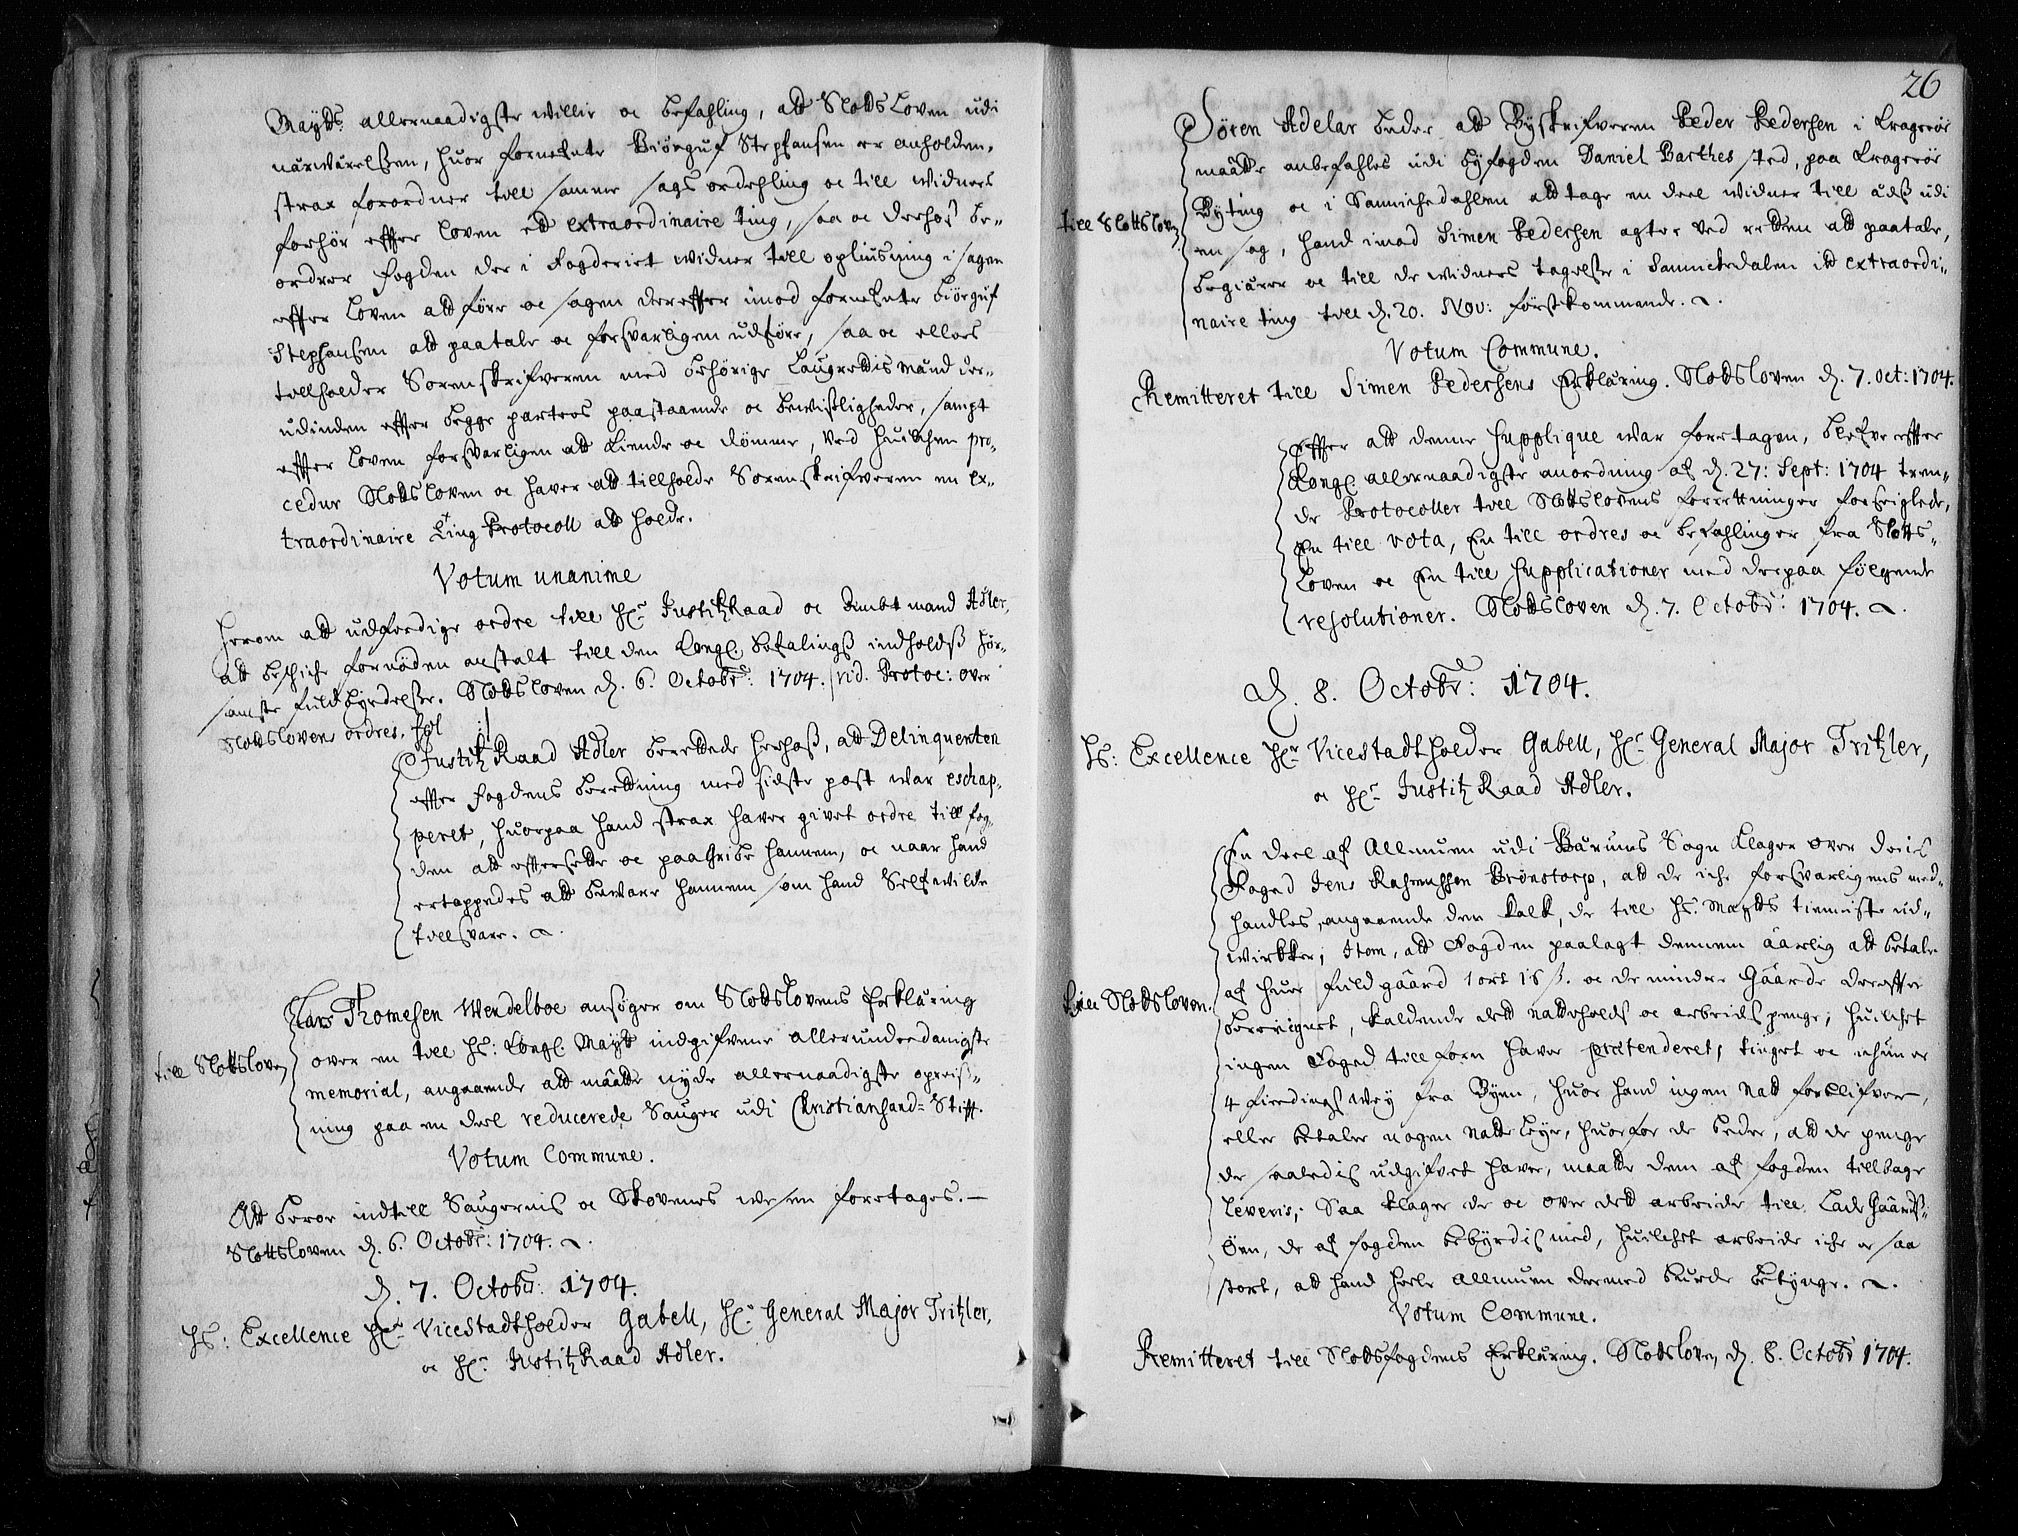 Mayts: allernaadigste willie oc befahling, att Slotsloven udi
nærwærelßen, huor fornefnte Biörguf Stephansen er anholden,
strax forordner till samme sags ordehling oc till widners
forhör effter loven ett extraordinaire ting, saa oc derhos be-
ordrer fogden der i fogderiet widner till opliusning i sagen
effter loven att före oc sagen dereffter imod fornefnte Biörguf
Stephansen att paatale oc forsvarligen udföre, saa oc ellers
tillholder Sorenskrifveren med behörige Laugrettis mænd der-
udinden effter begge parters paastaaende oc bewisligheder, sampt
effter loven forsvarligen att kiende oc dömme, ved huilchen pro-
cedur Slotsloven oc haver att tillholde Sorenskrifveren en ex-
traordinaire Ting Protocoll att holde.
Votum unanime
Herom att udferdige ordre till Hr. Justitz Raad oc Ambtmand Adler,
att beschiche fornöden anstalt till den Kongl. befalings indholds hör-
samste fuldbyrdelse. Slotsloven d. 6. Octobr: 1704. vid. Protoc: over
Slotslovens ordres, fol
Justitz Raad Adler berettede herhoß, att Delinquenten
effter fogdens berettning med sidste post war eschap-
peret, huorpaa hand strax haver givet ordre till fog-
den att effersette oc paagribe hannem, oc naar hand
ertappedes att bevare hannem som hand Self wilde
tillsvare.
till Slotsloven
Lars Thomesen Wendelboe ansöger om Slotslovens Erklæring
over en till Hs: Kongl. Mayt indgifvene allerunderdanigste
memorial, angaaende att maatte nyde allernaadigste opreis-
ning paa en deel reducerede Sauger udi Christiansand-Stift.
Votum Commune.
Att beroe indtill Saugernis oc Skovenes wesen foretages.
Slottsloven d. 6. Octobr: 1704.
d. 7. Octobr: 1704.
Hs: Excellence Hr. Vicestadtholder Gabell, Hr. General Major Tritzler,
oc Hr. Justitz Raad Adler.
26
till Slottsloven
Sören Adelar beder att Byskrifveren Peder Pedersen i Kragerör
maatte anbefahles udi byfogden Daniel Barthes sted, paa Kragerör
Byting oc i Sannichedahlen att tage en deel widner till udi
en sag, hand imod Simen Pedersen agter ved retten att paatale,
begiærer oc till de widners tagelse i Sannichedalen itt extraordi-
naire ting till d. 20. Nov: förstkommende.
Votum Commune.
Remitteret till Simen Pedersens Erklæring. Slotsloven d. 7. Oct: 1704.
Effter att denne Supplique war foretagen, blefve effter
Kongl. allernaadigste anordning af d. 27: Sept: 1704 tren-
de Protocoller till Slotslovens forrettninger forseiglede,
En till vota, En till ordres oc befahlinger fra Slotts-
loven oc En till Supplicationer med derpaa fölgende
resolutioner. Slotsloven d. 7. Octobr: 1704.
d. 8. Octobr: 1704.
Hs: Excellence Hr. Vicestadtholder Gabell, Hr. General Major Tritzler,
oc Hr. Justitz Raad Adler.
till Slotsloven.
En deel af Allmuen udi Bærums Sogn klager over deris
Foged Jens Rasmussen Brönstorp, att de iche forsvarligens med-
handles, angaaende den kalk, de till Hs. Mayts tieniste ud-
wirkker; Item, att fogden paalagt dennem aarlig att betale
af huer fuld gaard 1 ort 16 ß. oc de mindre Gaarde dereffter
beregnet, kaldende dett natteholds oc arbeids penge; huilchet
ingen Foged tillforn haver prætenderet, tinget oc ichun er
4 fierdings wey fra Byen, huor hand ingen Natt forblifver,
eller betaler nogen Natte leye, huorfor de beder, att de penge
de saaledis udgifvet haver, maatte dem af fogden tillbage
leveris; Saa klager de oc over dett arbeide till Ladegaards-
Öen, de af fogden bebyrdis med, huilchet arbeide iche er saa
stort, att hand heele Allmuen dermed burde betynge.
Votum Commune.
Remitteret till Slotsfogdens Erklæring. Slotsloven d. 8. Octobr 1704.